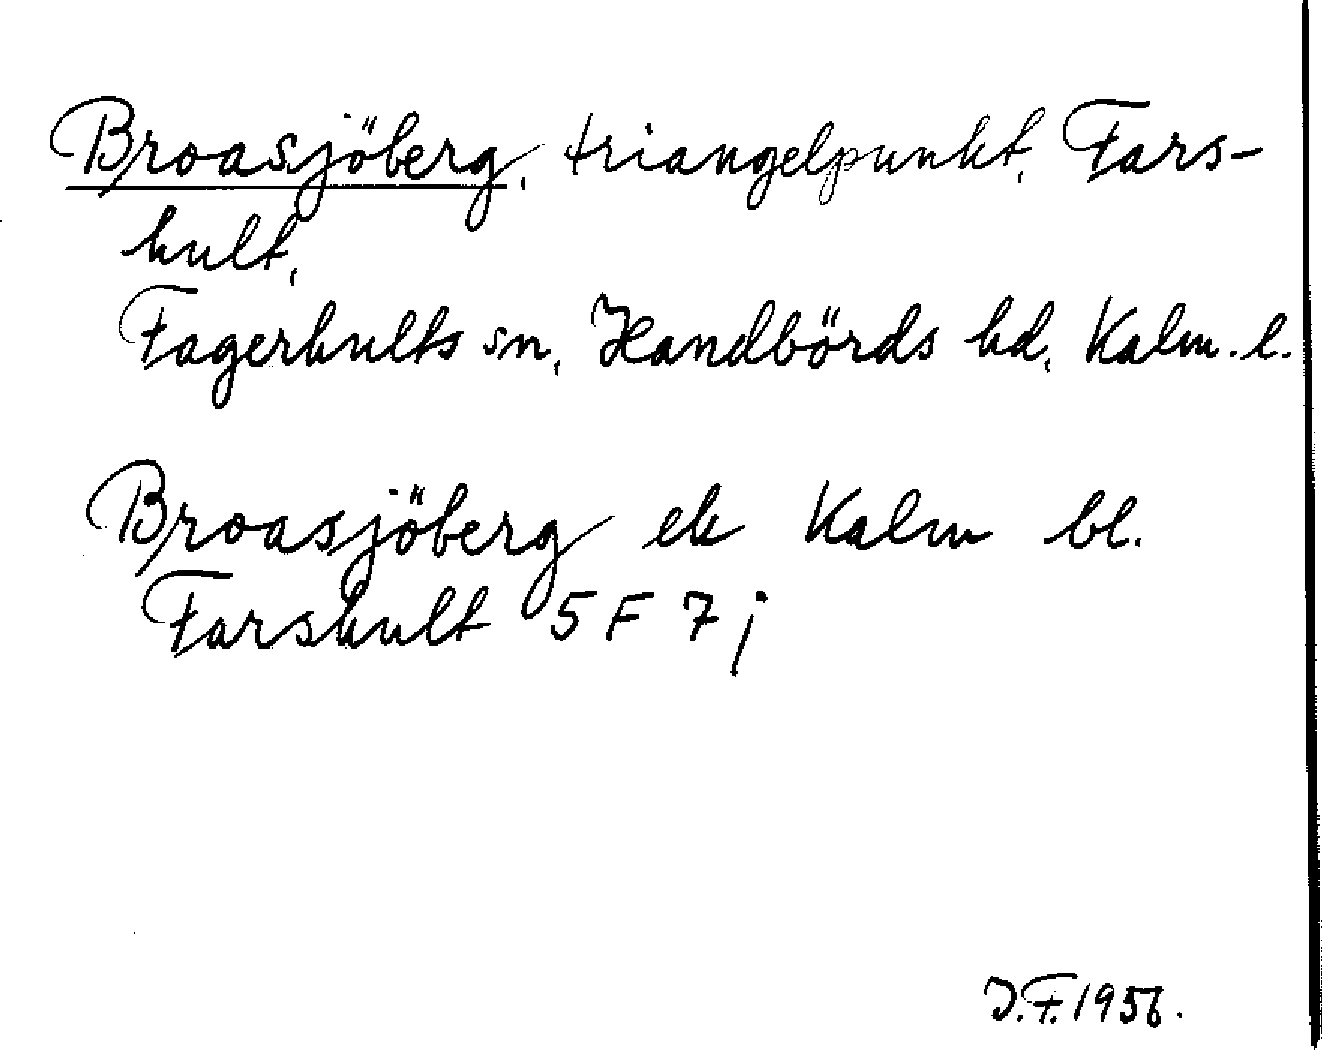 Broasjöberg, triangelpunkt, Fars-
hult,
Fagerhults sn, Handbörds hd, Kalm. l.
Broasjöberg ek Kalm bl.
Farshult 5 F 7 j
J.F. 1956.